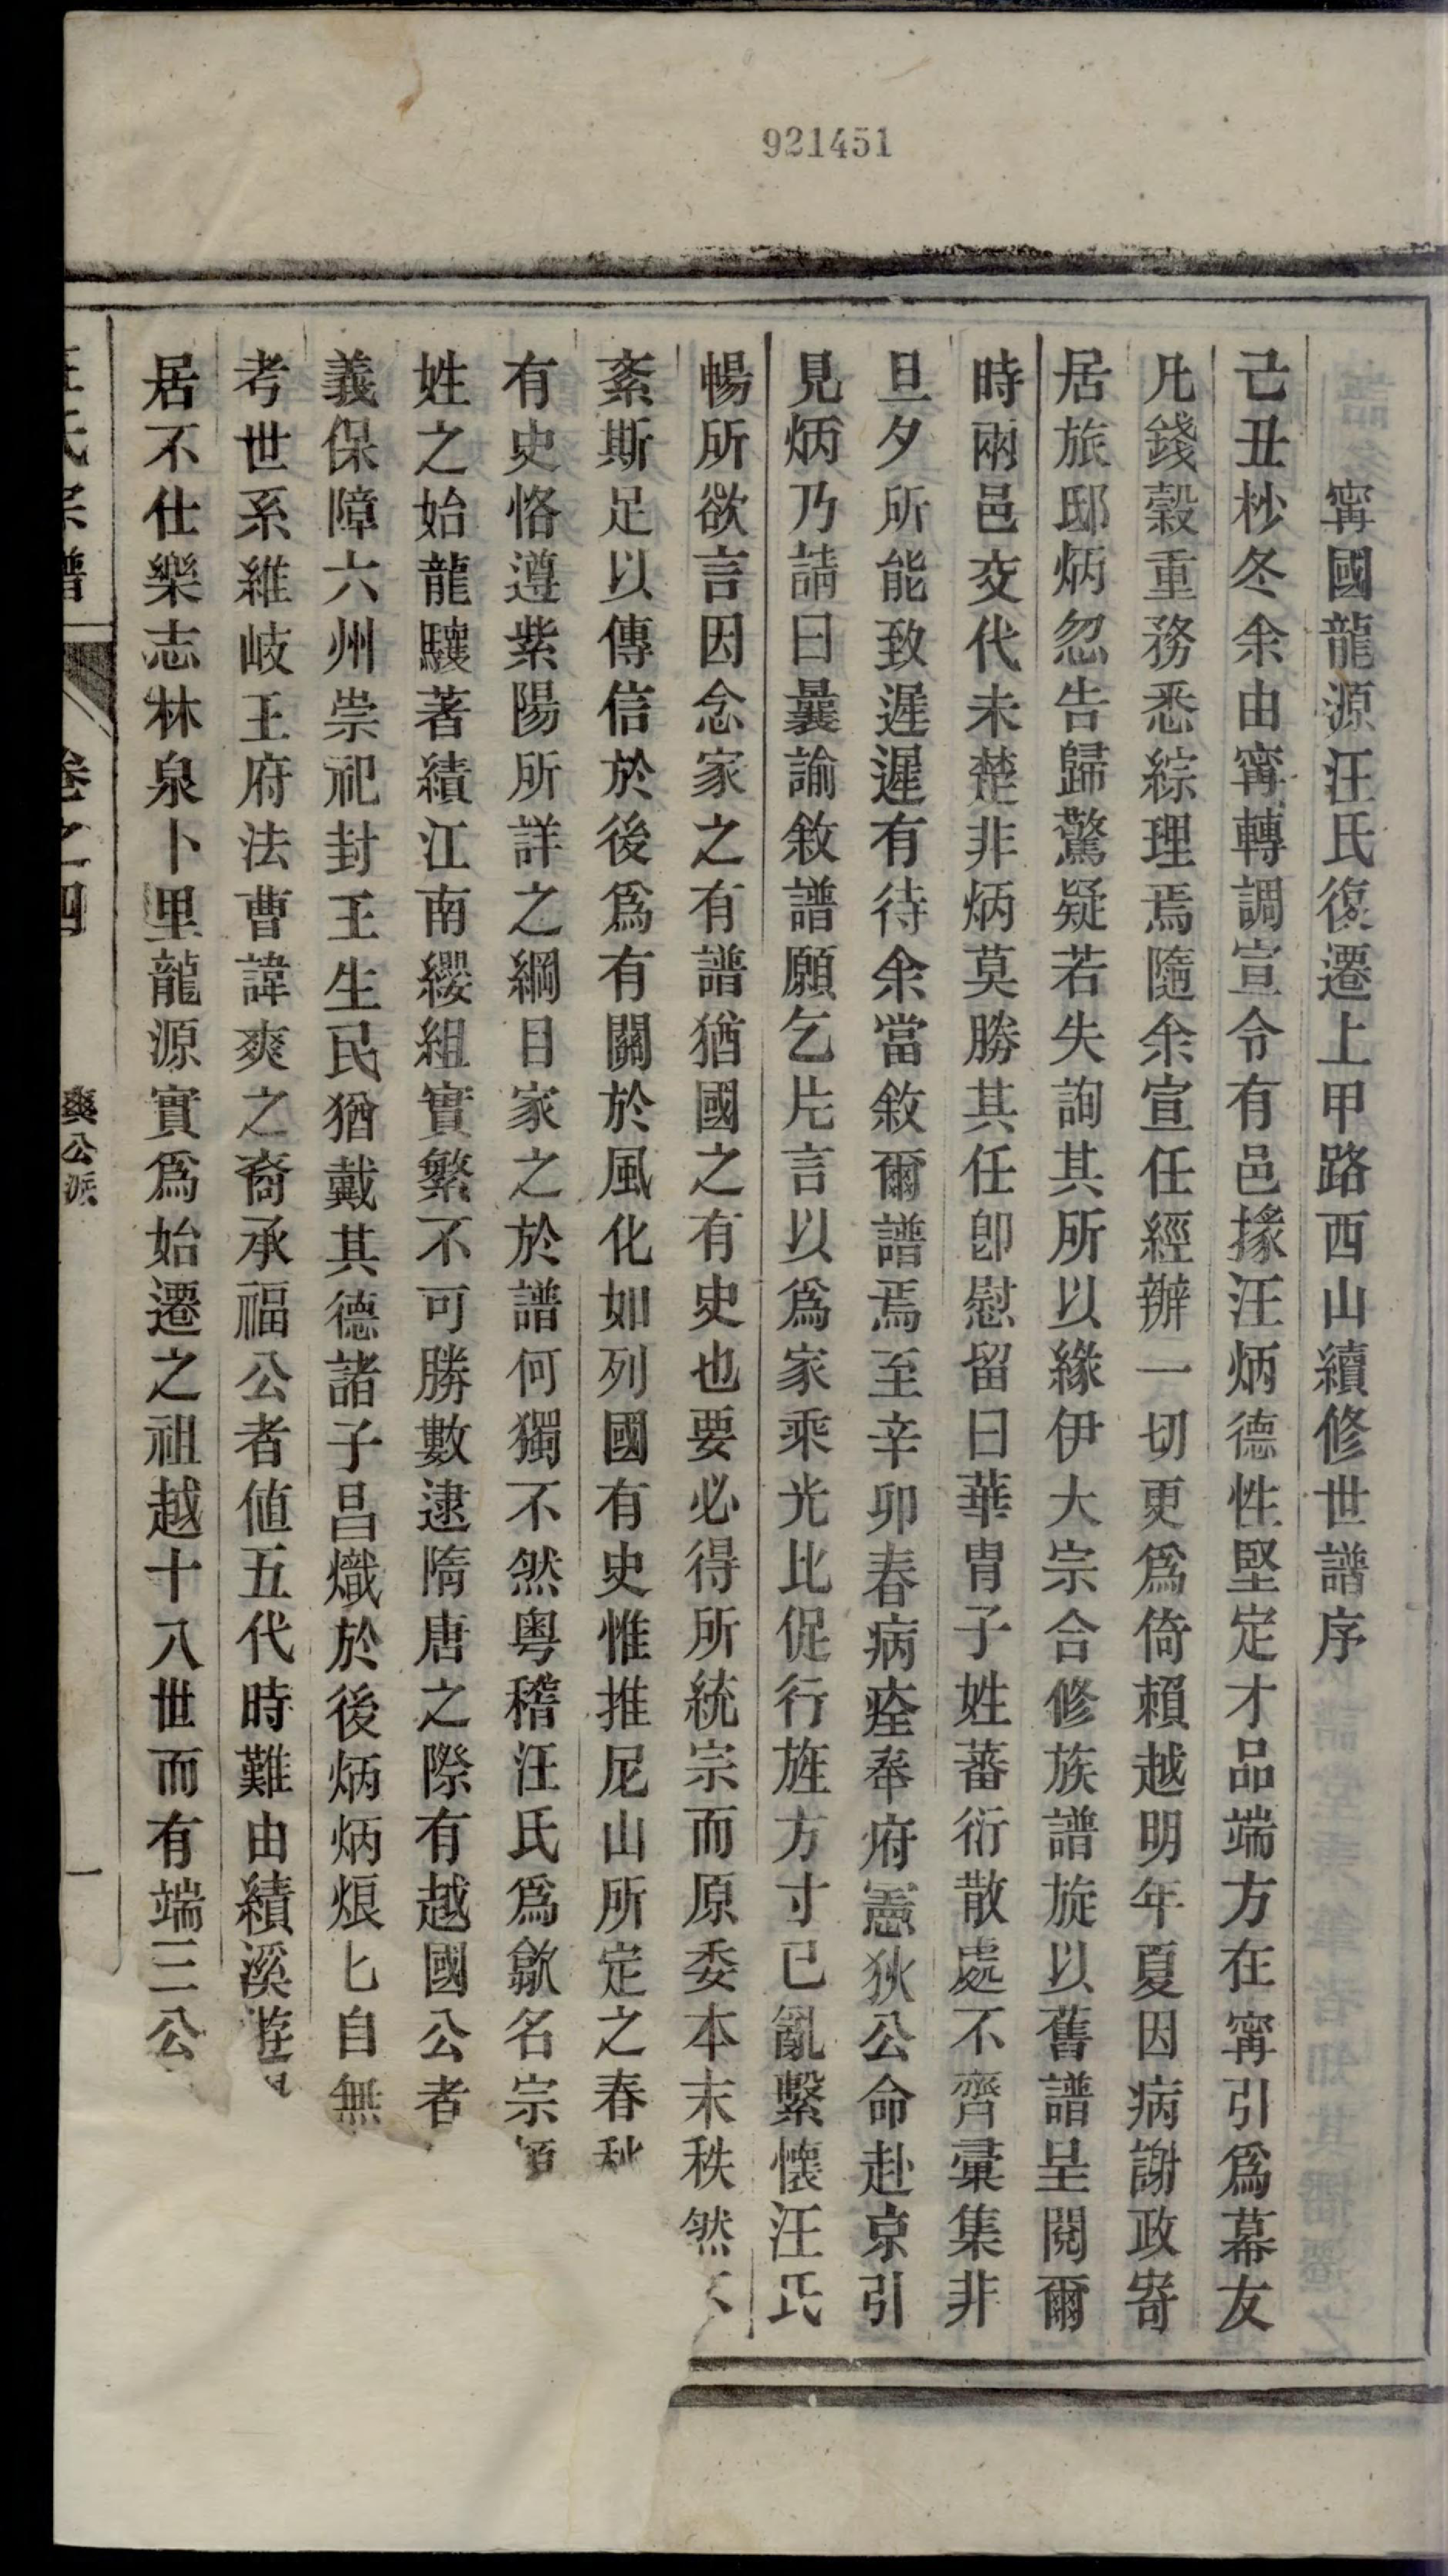 921451
寗國龍源汪氏復遷上甲路西山續修世譜序
己丑杪冬余由寗轉調宣令有邑掾汪炳德性堅定才品端方在寗引爲幕友
凡錢穀重務悉綜理焉隨余宣任經辦一切更爲倚賴越明年夏因病謝政寄
居旅邸炳忽告歸驚疑若失詢其所以緣伊大宗合修族譜旋以舊譜呈閱爾
時兩邑交代未楚非炳莫勝其任卽慰留曰華冑子姓蕃衍散處不齊彙集非
旦夕所能致遲遲有待余當敘爾譜焉至辛卯春病痊奉府憲狄公命赴京引
見炳乃請曰曩諭敘譜願乞片言以爲家乘光比促行旌方寸已亂繫懷汪氏
暢所欲言因念家之有譜猶國之有史也要必得所統宗而原委本末秩然不
紊斯足以傳信於後爲有關於風化如列國有史惟推尼山所定之春秋
有史恪遵紫陽所詳之綱目家之於譜何獨不然粵稽汪氏爲歙名宗
姓之始龍驤著績江南纓組實繁不可勝數逮隋唐之際有越國公者
義保障六州崇祀封王生民猶戴其德諸子昌熾於後炳炳烺匕自無
考世系維岐王府法曹諱爽之裔承福公者値五代時難由績溪遊
居不仕樂志林泉卜里龍源實爲始遷之祖越十八世而有端三公
汪氏宗譜 卷之四 爽公派 一